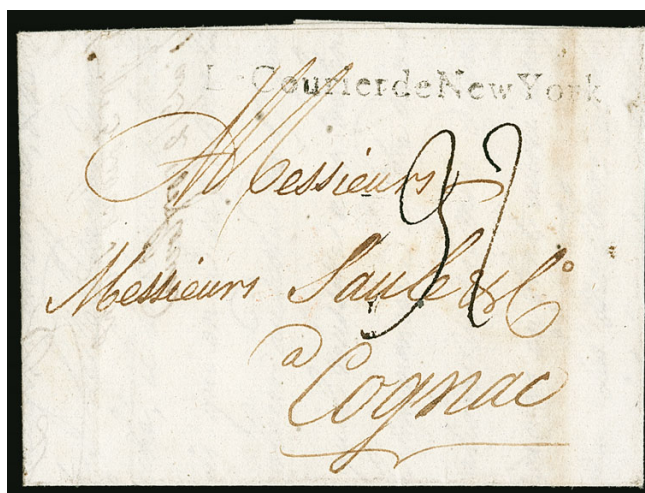 Le Courier de New York
Messieurs
Messieurs Saule & C°
a
Cognac